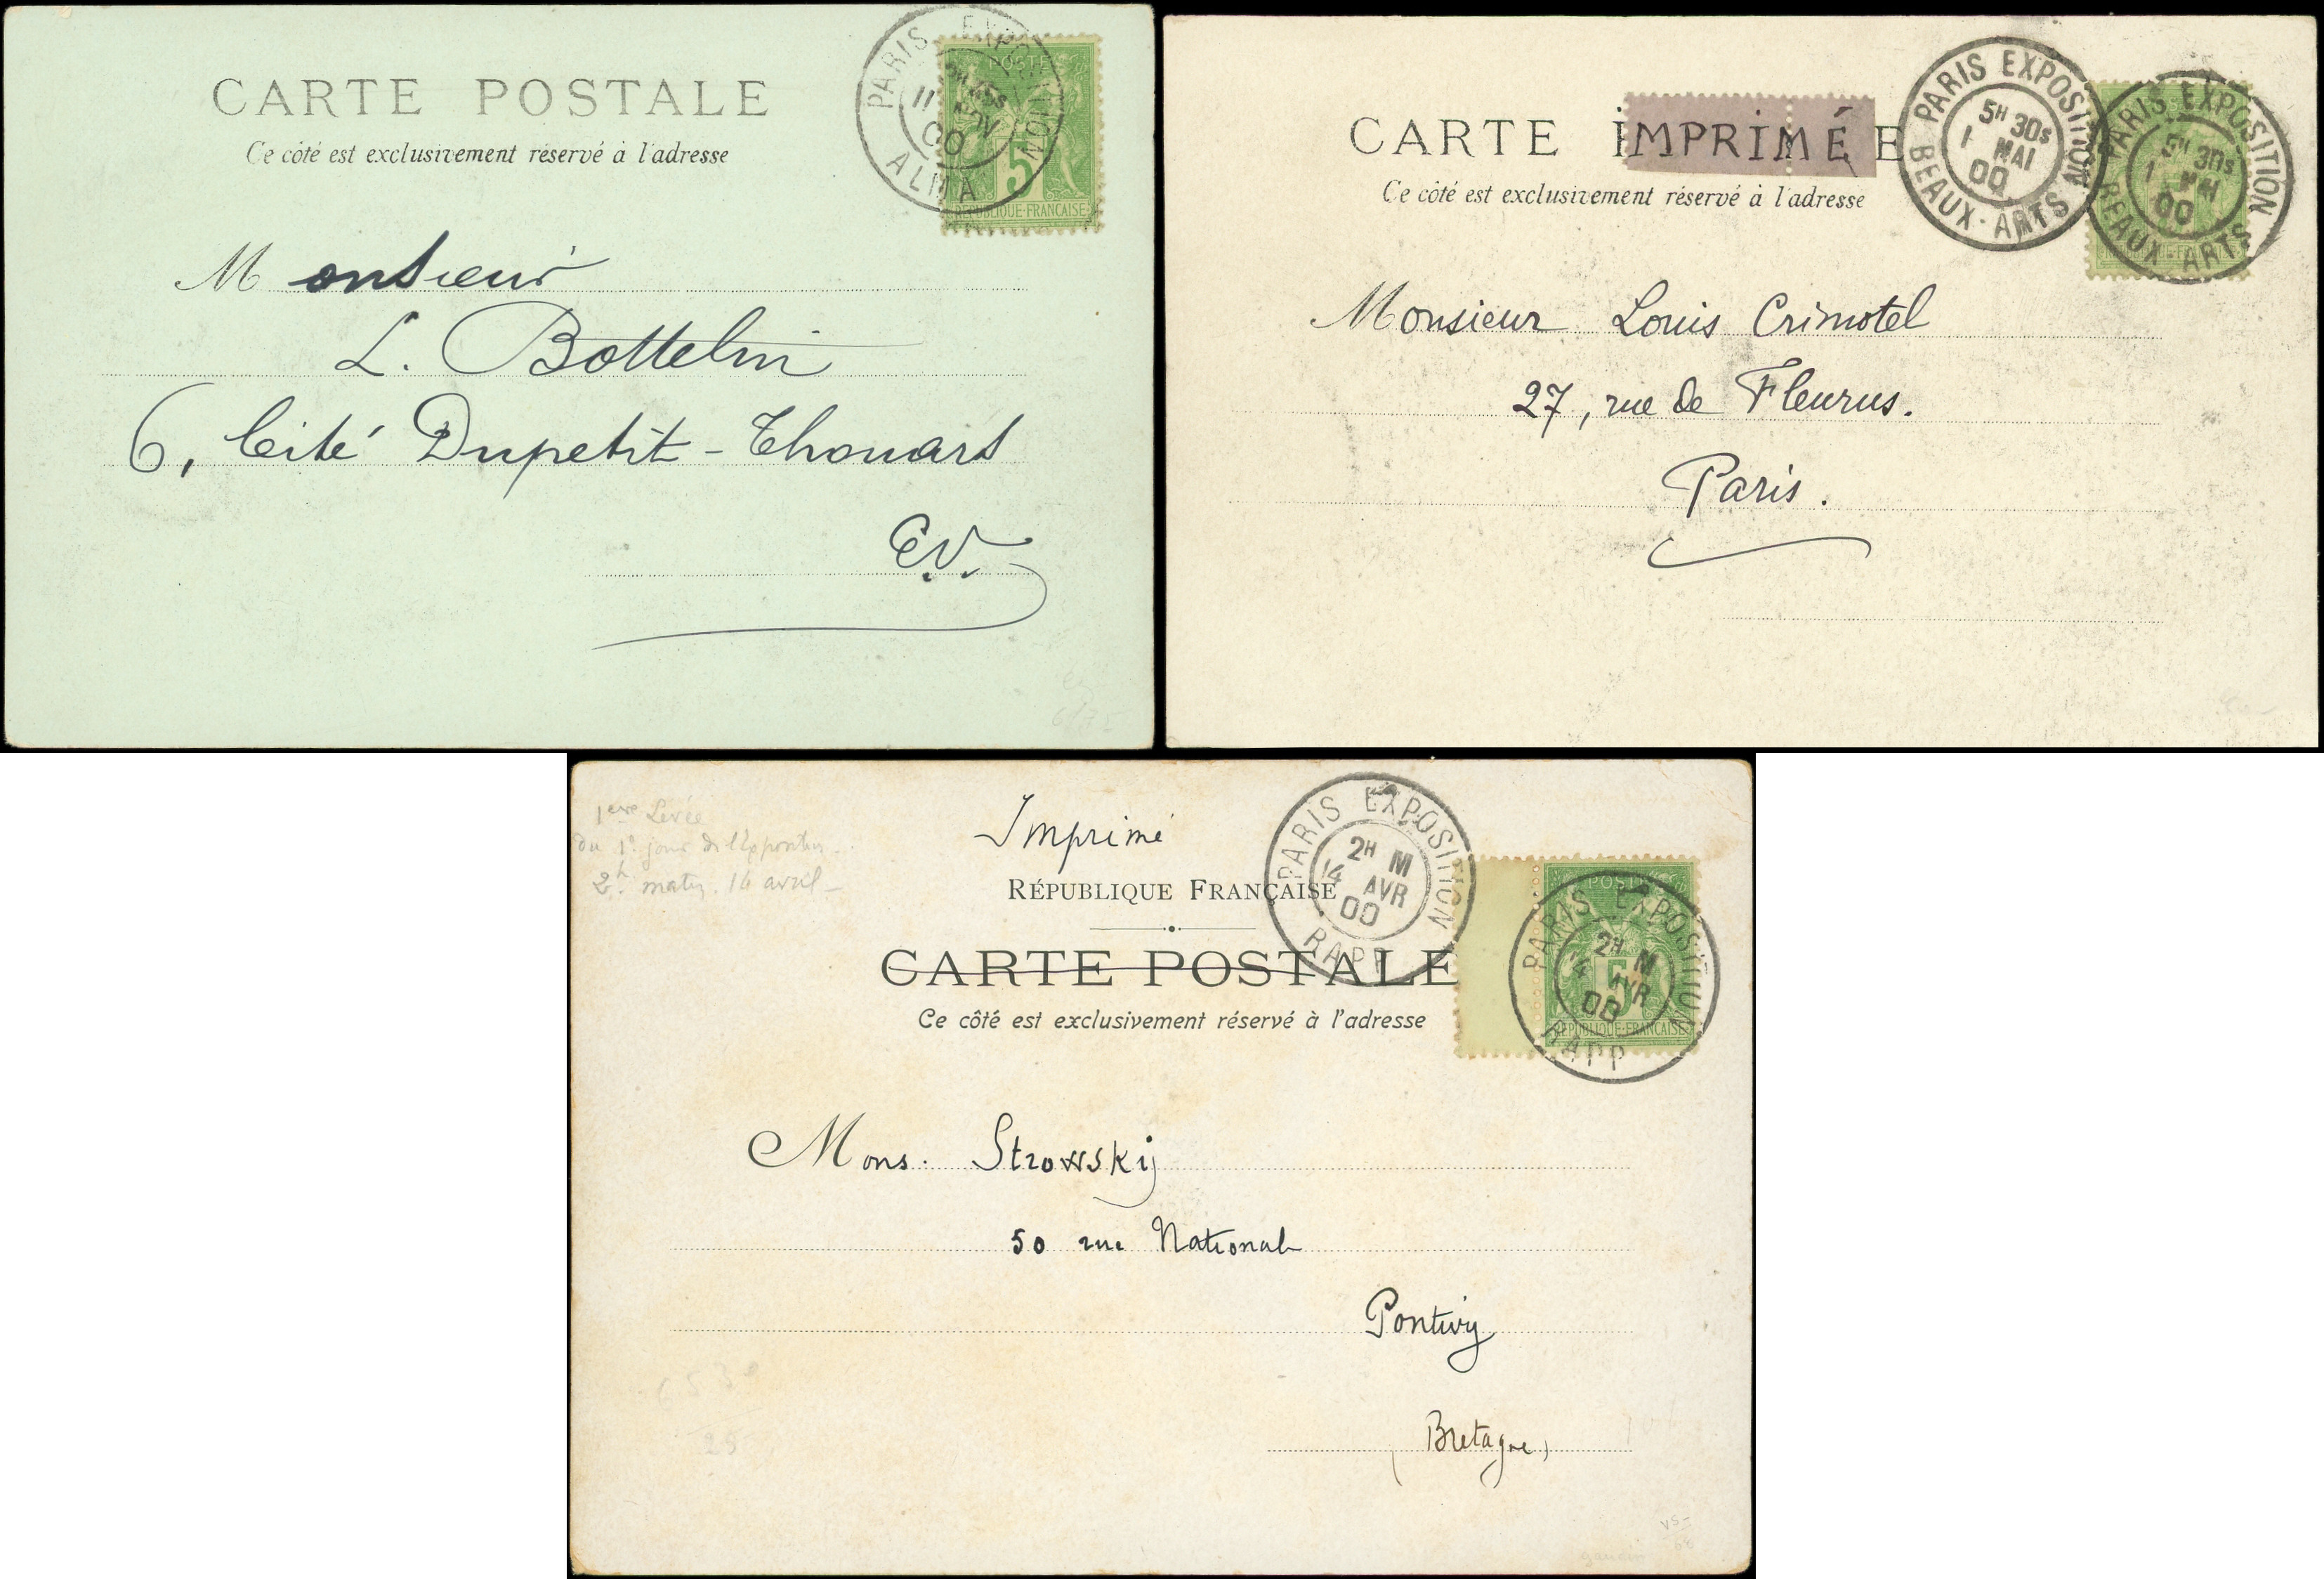 CARTE POSTALE
Ce côté est exclusivement réservé à l'adresse
PARIS EXPOSITION
11 NOV
00
ALMA
POSTES
5
REPUBLIQUE-FRANÇAISE
Monsieur
L. Bottelin
6, Cité Dupetit-Thouars
E.V.
CARTE IMPRIMÉ E
Ce côté est exclusivement réservé à l'adresse
PARIS EXPOSITION
5H 30s
1 MAI
00
BEAUX-ARTS
PARIS EXPOSITION
5H 30s
1 MAI
00
BEAUX-ARTS
Monsieur Louis Crimotel
27, rue de Fleurus.
Paris.
1ere Levée
du 1er jour de l'Exposition
2h matin. 14 avril
Imprimé
RÉPUBLIQUE FRANÇAISE
CARTE POSTALE
Ce côté est exclusivement réservé à l'adresse
PARIS EXPOSITION
2H M
14 AVR
00
RAPP
POSTES
5
REPUBLIQUE-FRANÇAISE
PARIS EXPOSITION
2H M
14 AVR
00
RAPP
Mons. Strowskij
50 rue National
Pontivy
(Bretagne)